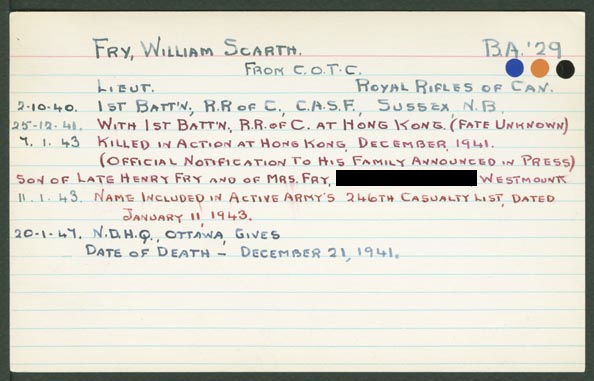 FRY, WILLIAM SCARTH. B.A. '29
FROM C.O.T.C.
LIEUT. ROYAL RIFLES OF CAN.
2-10-40. 1ST BATT'N, R.R OF C., C.A.S.F., SUSSEX, N.B.
25-12-41. WITH 1ST BATT'N, R.R. OF C. AT HONG KONG. (FATE UNKNOWN)
7.1.43 KILLED IN ACTION AT HONG KONG, DECEMBER, 1941.
(OFFICIAL NOTIFICATION TO HIS FAMILY ANNOUNCED IN PRESS)
SON OF LATE HENRY FRY AND OF MRS. FRY, WESTMOUNT
11.1.43. NAME INCLUDED IN ACTIVE ARMY'S 246TH CASUALTY LIST, DATED
JANUARY 11, 1943.
20-1-47. N.D.H.Q., OTTAWA, GIVES
DATE OF DEATH - DECEMBER 21, 1941.